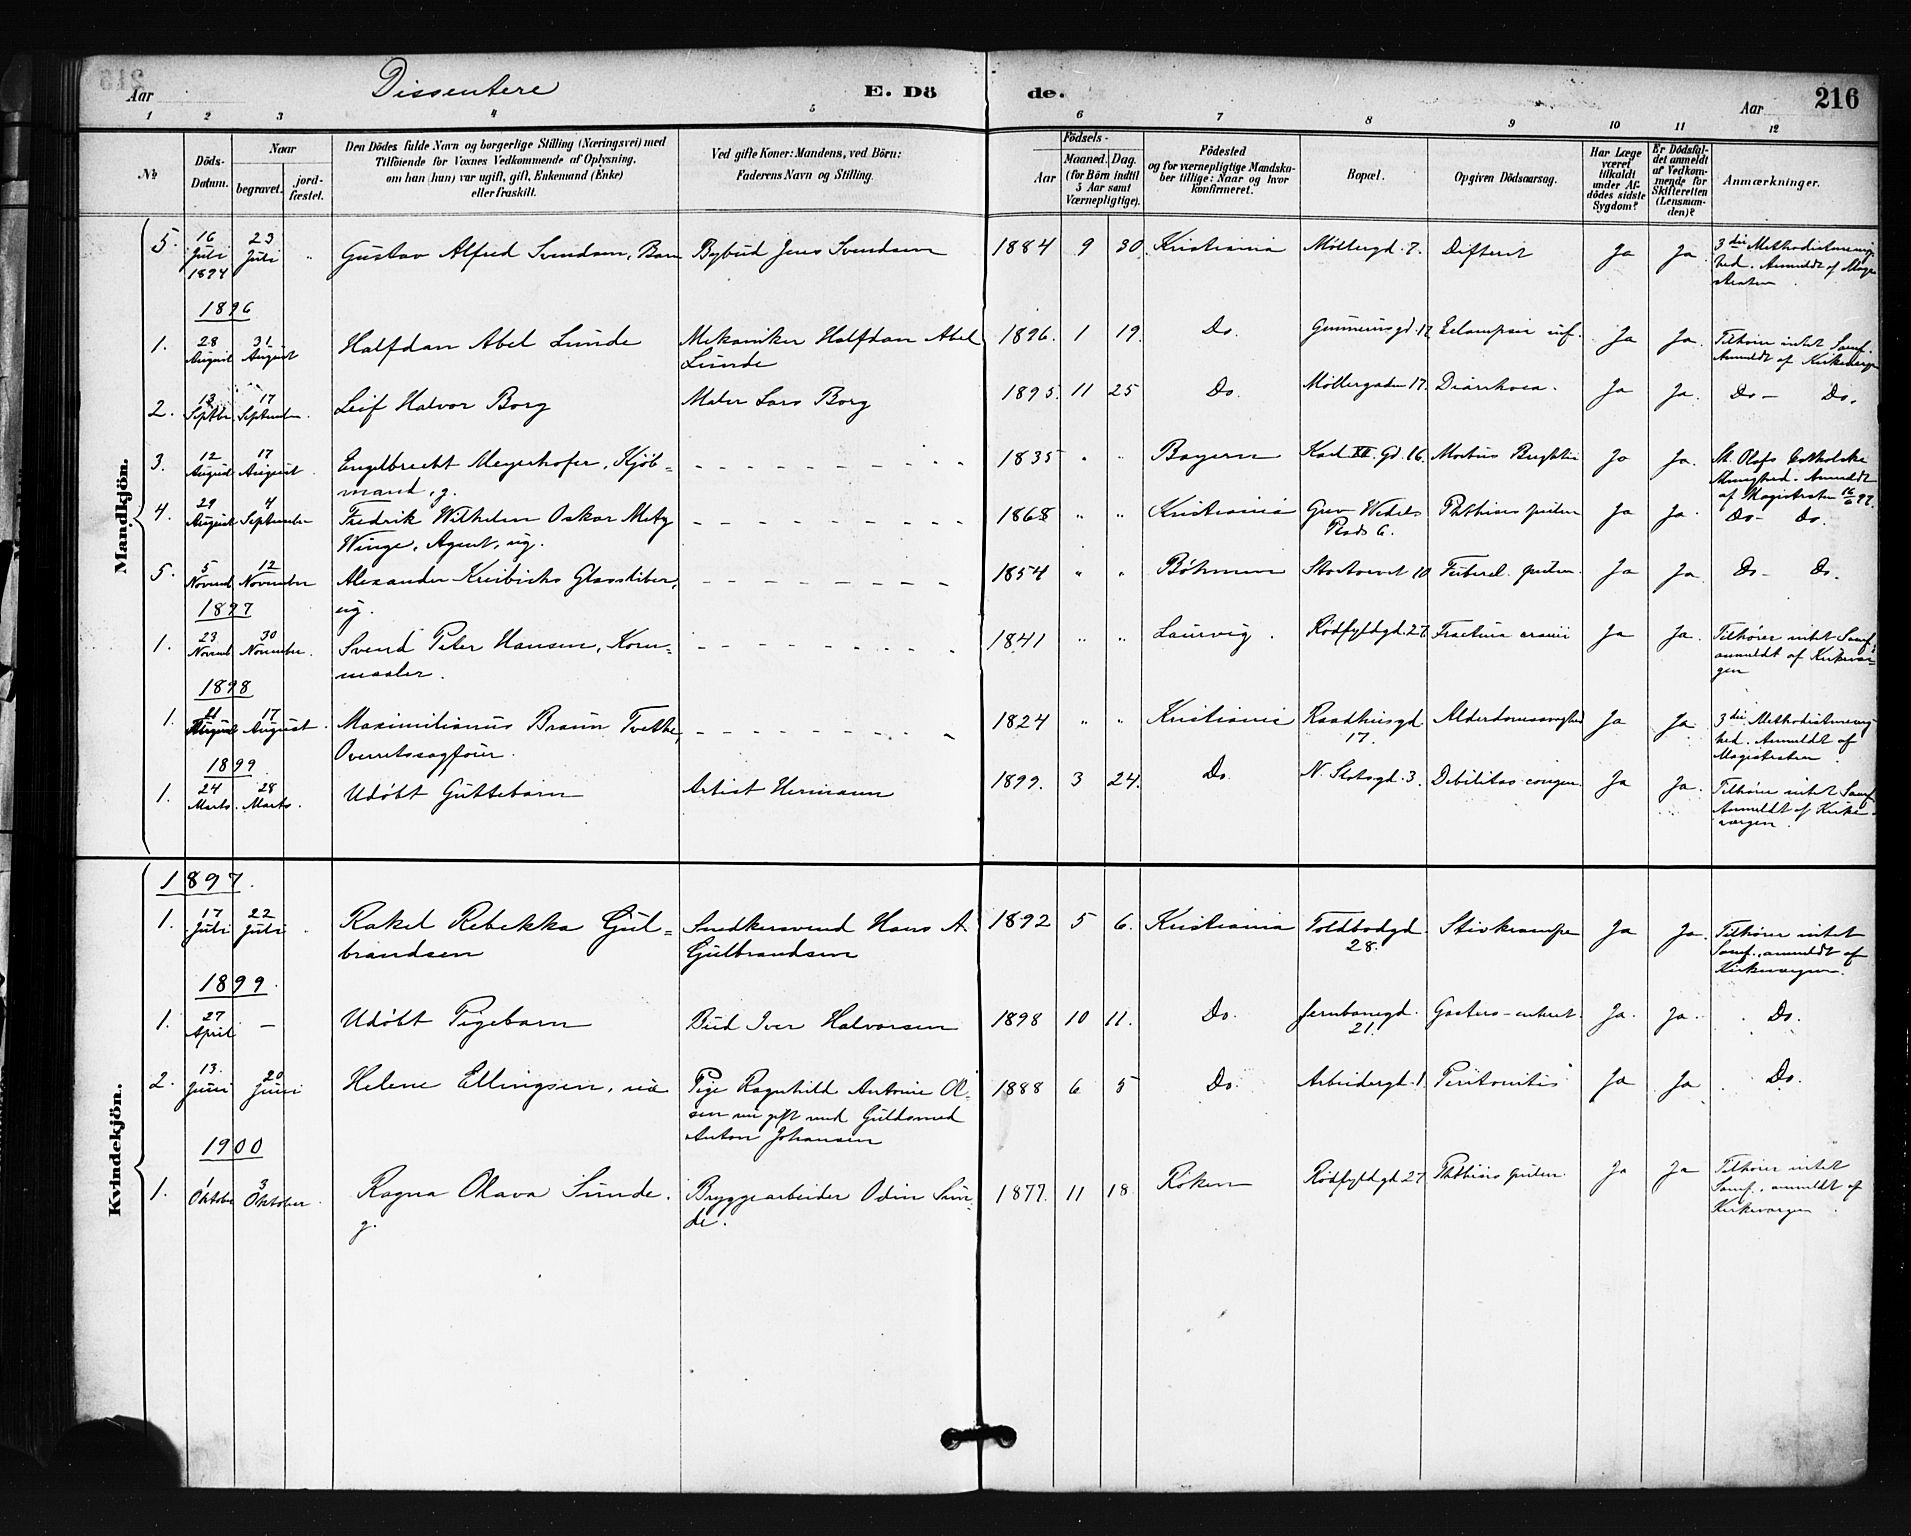 Dissentere
E. Dö de.
216
Aar
Aar
1 2 3 4 5 6 7 8 9 10 11 12
№
Döds-
Datum.
Naar
begravet.
jord-
fæstet.
Den Dödes fulde Navn og borgerlige Stilling (Næringsvei) med
Tilföiende for Voxnes Vedkommende af Oplysning,
om han (hun) var ugift, gift, Enkemand (Enke)
eller fraskilt.
Ved gifte Koner: Mandens, ved Börn:
Faderens Navn og Stilling.
Födsels-
Aar
Maaned. Dag.
(for Börn indtil
5 Aar samt
Værnepligtige).
Födested
og for værnepligtige Mandska-
ber tillige: Naar og hvor
konfirmeret.
Bopæl.
Opgiven Dödsaarsag.
Har Læge
været
tilkaldt
under Af-
dödes sidste
Sygdom?
Er Dödsfal-
det anmeldt
af Vedkom-
mende for
Skifteretten
(Lensman-
den)?
Anmærkninger.
Mandkjön.
5. 16 Juli 1894 23 Juli " Gustav Alfred Svendsen, Barn Bybud Jens Svendsen 1884 9 30 Kristiania Möllergd. 7. Difterit Ja Ja. 3die Methodistmenig-
hed. Anmeldt af Magi-
straten.
1896
1. 28 August 31 August Halfdan Abel Lunde Mekaniker Halfdan Abel 1896. 1 19. Do. Gunnerusgd. 12 Eclampsia inf. Ja Ja. Tilhører intet Samf.
Lunde Anmeldt af Kirkevergen
2. 13 Septbr. 17 September. Leif Halvor Borg Maler Lars Borg 1895. 11 25 Do. Möllergaden 17. Diarrhoea. Ja Ja. Do — Do.
3. 12 August 17 August. Engelbrecht Meyerhofer, Kjøb- 1835 " " Bayern Karl XII. Gd. 16. Morbus Brightii Ja Ja. St. Olafs Catholske
mand, g. Menighed. Anmeldt
af Magistraten
4. 29 August 4 September Fredrik Wilhelm Oskar Metz 1868 " " Kristiania Grev Wedels Phthisis pulm Ja Ja. Do — Do.
Winge, Agent, ug. Plads 6.
5. 5 Novemb 12 November Alexander Kreibichs Glassliber, 1854 " " Böhmen Skostrædet 10 Tubercl. pulm. Ja Ja. Do — Do.
ug.
1897
1. 23 Novemb 30 November. Svend Peter Hansen, Korn- 1841 " " Laurvig. Rödfyldgd. 27. Fractura cranii Ja Ja. Tilhører intet Samf.
maaler. anmeldt af Kirkever-
gen
1898
1. 11 August 17 August. Maximilianus Braun Tvethe, 1824 " " Kristiania Raadhusgd 17. Alderdomssvaghed Ja Ja. 3die Methodistmenig-
Overretssagfører. hed. Anmeldt af
Magistraten.
1899
1. 24 Marts. 28 Marts. Udöbt Guttebarn Artist Hermann 1899. 3 24. Do. N. Slotsgd. 3. Debilitas congen. Ja Ja. Tilhører intet Samf.
Anmeldt af Kirke-
vergen.
Kvindekjön.
1897.
1. 17 Juli 22 Juli. Rakel Rebekka Gul- Snedkersvend Hans A. 1892 5 6. Kristiania Toldbodgd 28. Stivkrampe Ja Ja. Tilhører intet
brandsen Gulbrandsen Samf., anmeldt af
Kirkevergen.
1899.
1. 27 April — Udöbt Pigebarn Bud Iver Halvorsen 1898 10 11. Do. Jernbanegd. 21. Gastero-enterit. Ja. Ja. Do.
2. 13. Juni 20 Juni Helene Ellingsen, Pige Ragnhild Antonie Ol- 1888 6 5 Do. Arbeidergd. 1 Peritonitis Ja Ja Do.
sen nu gift med Guldsmed
Anton Johansen
1900
1. 1 Oktober 3 Oktober. Ragna Olava Sunde. Bryggearbeider Odin Sun- 1877. 11 18. Röken Rödfyldgd 27. Phthisis pulm. Ja Ja Tilhører intet
g. de. Samf., anmeldt af
Kirkevergen.